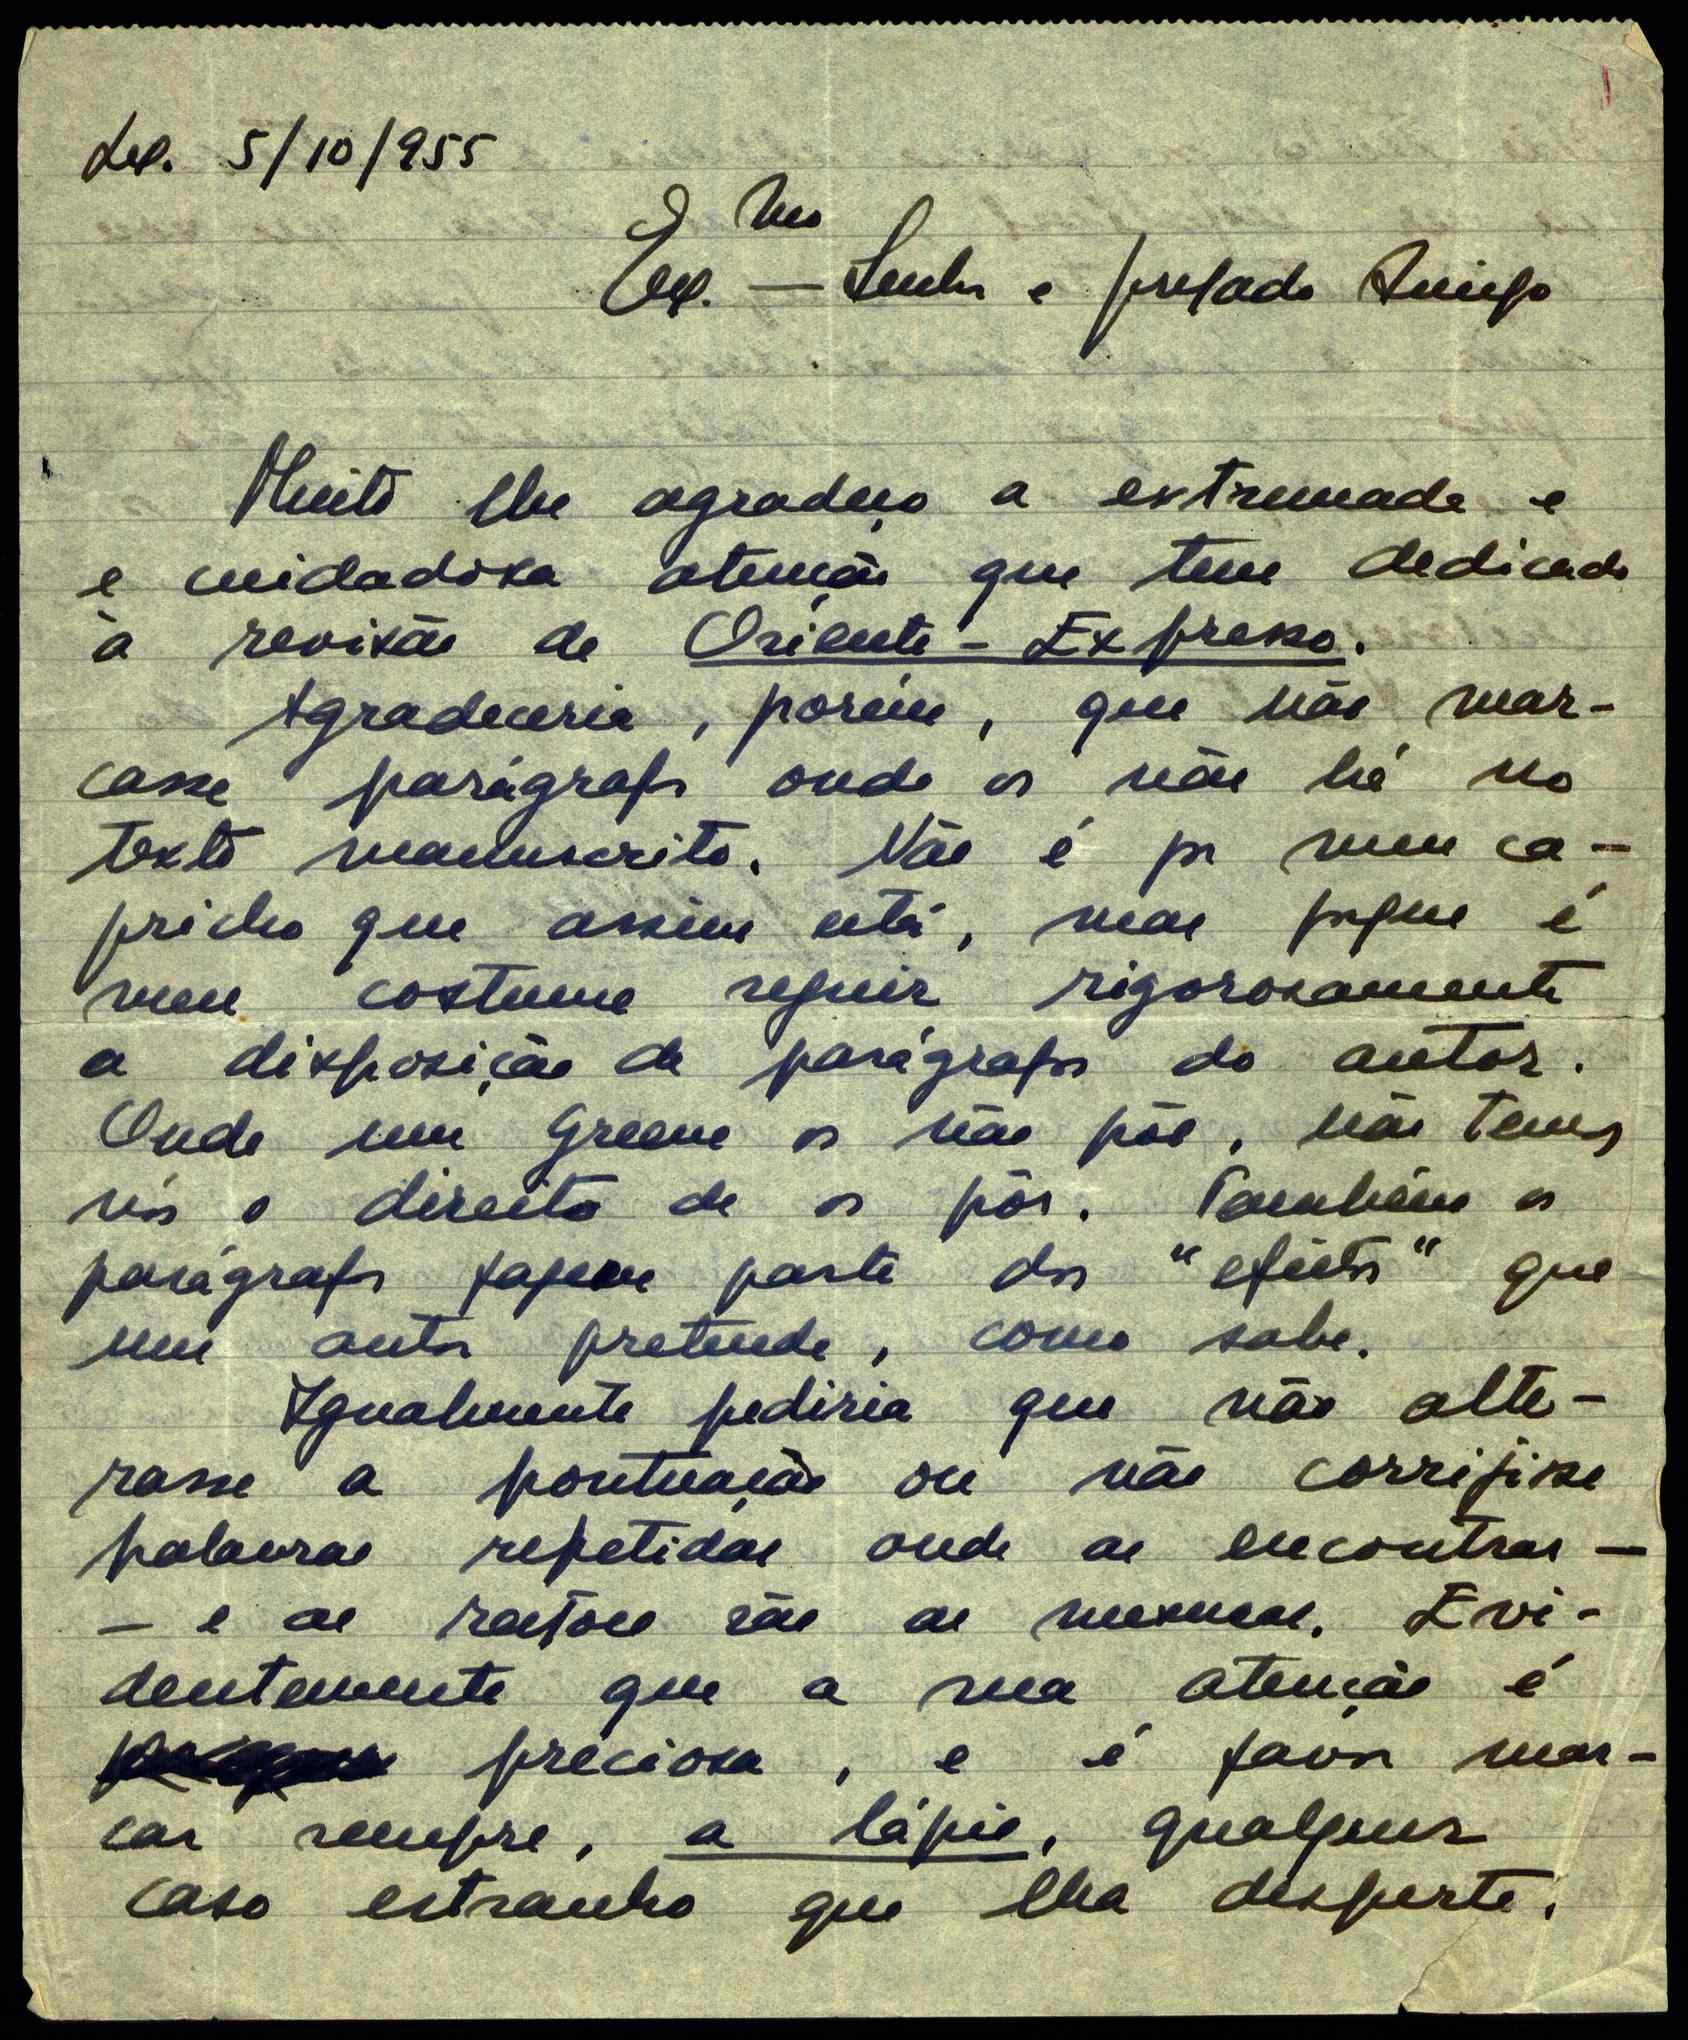 Lx. 5/10/955
Ex.mo Senhor e prezado Amigo
Muito lhe agradeço a extremada e
e cuidadosa atenção que tem dedicado
à revisão de Oriente-Expresso.
Agradeceria, porém, que não mar-
casse parágrafos onde os não há no
texto manuscrito. Não é por meu ca-
pricho que assim está, mas porque é
meu costume seguir rigorosamente
a disposição de parágrafos do autor.
Onde um Greene os não põe, não temos
nós o direito de os pôr. Também os
parágrafos fazem parte dos "efeitos" que
um autor pretende, como sabe.
Igualmente pediria que não alte-
rasse a pontuação ou não corrijisse
palavras repetidas onde as encontrar —
— e as razões são as mesmas. Evi-
dentemente que a sua atenção é
preciosa, e é favor mar-
car sempre, a lápis, qualquer
caso estranho que lha desperte.